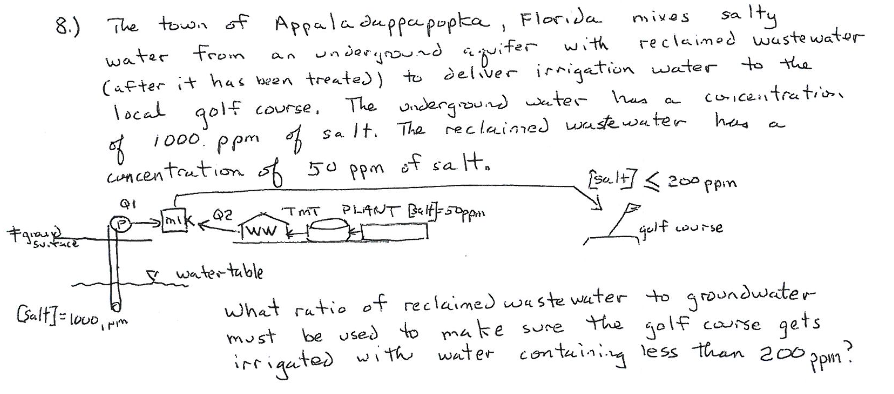 8.) The town of Appaladuppapopka, Florida mixes salty
water from an underground aquifer with reclaimed wastewater
(after it has been treated) to deliver irrigation water to the
local golf course. The underground water has a concentration
of 1000 ppm of salt. The reclaimed wastewater has a
concentration of 50 ppm of salt.
[salt] ≤ 200 ppm
Q1
P
mix
Q2
TMT PLANT [salt]=50ppm
WW
golf course
ground
surface
water table
[salt]=1000 ppm
What ratio of reclaimed wastewater to groundwater
must be used to make sure the golf course gets
irrigated with water containing less than 200 ppm?